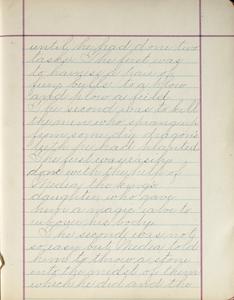 until he had done two
tasks. The first was
to harness a pair of
fiery bulls to a plow
and plow a field.
The second was to kill
the men who sprang
from some dragon's
teeth he had planted.
The first was easily
done with the help of
Media, the king's
daughter who gave
him a magic salve to
rub over his body.
The second was not
so easy but Media told
him to throw a stone
into the midst of them
which he did and the